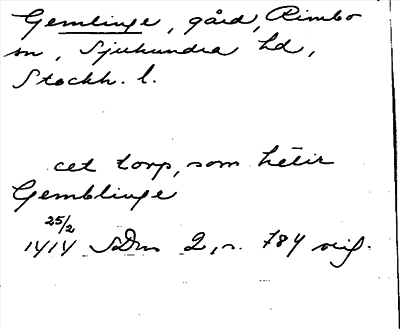 Gemlinge, gård, Rimbo
sn, Sjuhundra hd,
Stockh. l.
cet torp, som hetir
Gemblinge
25/2
1414 SDns 2, n. 784 orig.